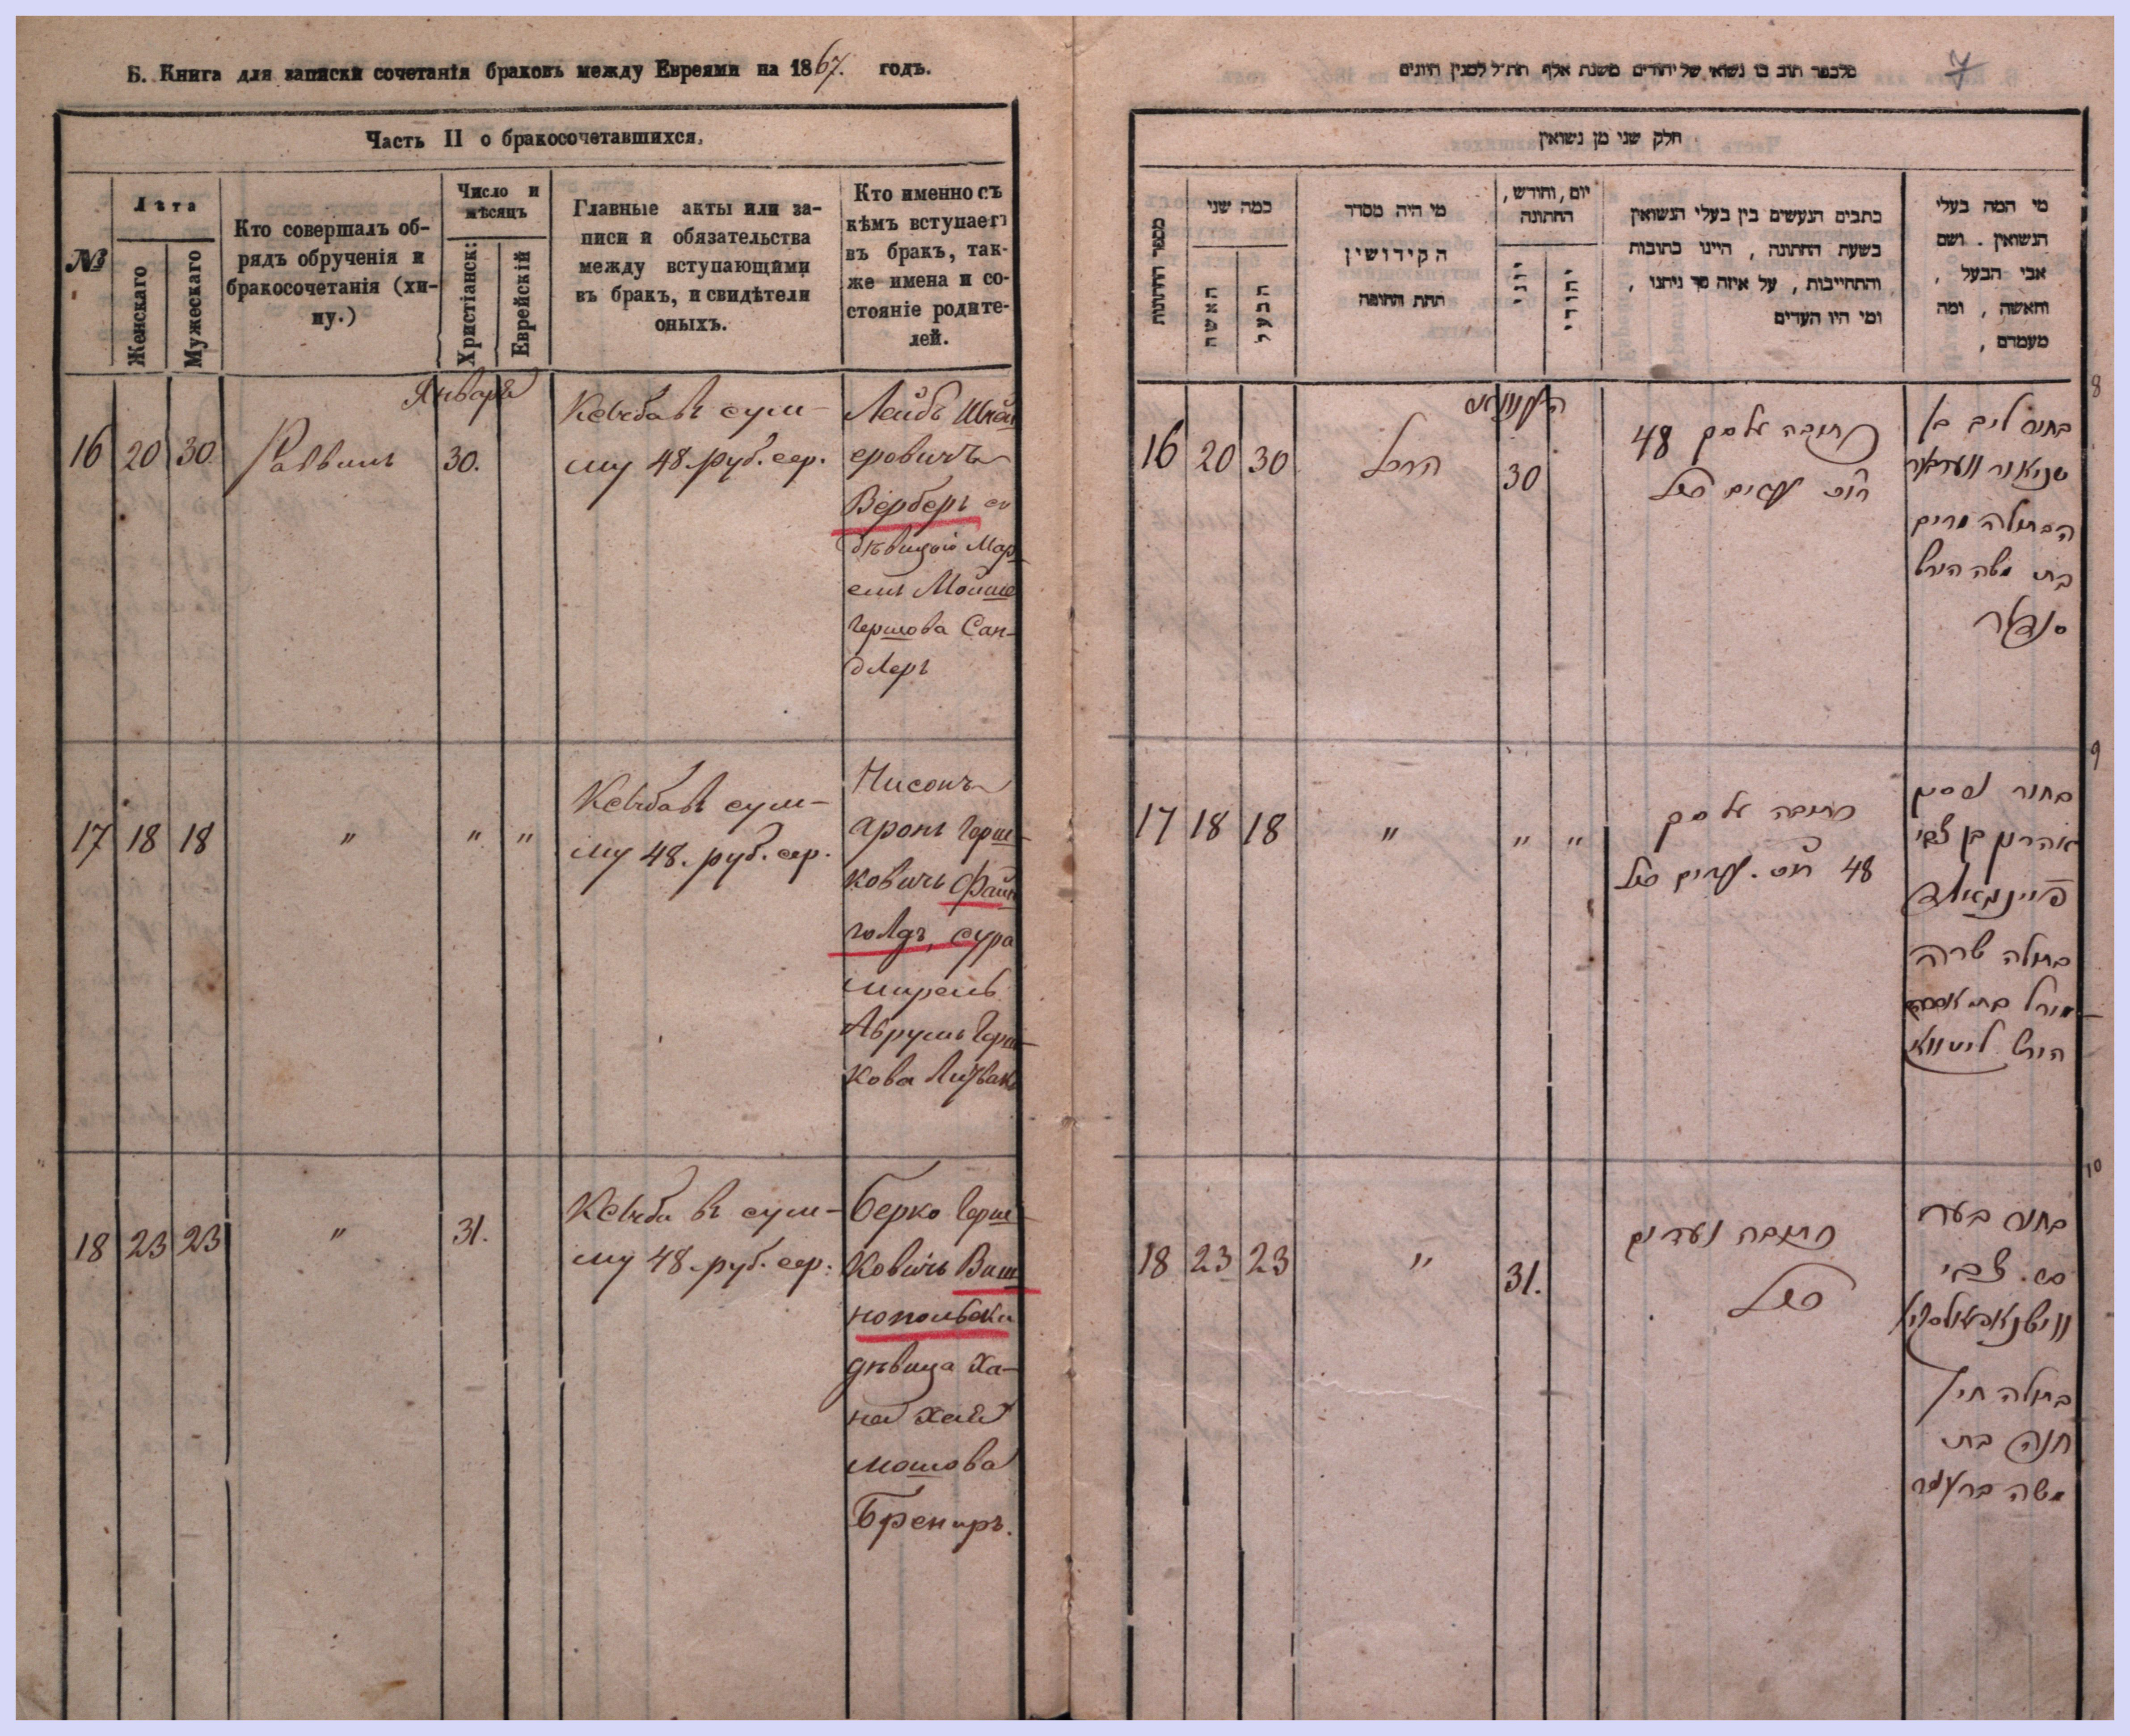 Б. Книга для записки сочетанія браковъ между Евреями на 1867. годъ.
Часть II о бракосочетавшихся.
№
Лѣта
Женскаго
Мужескаго
Кто совершалъ об-
рядъ обрученія и
бракосочетанія (хи-
пу.)
Число и
мѣсяцъ
Христіанск:
Еврейскій
Главные акты или за-
писи и обязательства
между вступающими
въ бракъ, и свидѣтели
оныхъ.
Кто именно съ
кѣмъ вступаетъ
въ бракъ, так-
же имена и со-
стояніе родите-
лей.
Января
16 20 30. Раввинъ 30.
Кетба въ сум-
му 48 руб. сер.
Лейбъ
еровичъ
Верберъ съ
дѣвицою Мар
емъ Мойше
Гершова Сан-
длеръ
17 18 18 " " "
Кетба въ сум-
му 48. руб. сер.
Нисонъ
Аронъ Герш-
ковичъ Файн
голдъ, Сура
Мирель
Аврумъ Герш
кова Литвакъ
18 23 23 " 31.
Кетба въ сум-
му 48 руб. сер.
Берко Герш-
ковичъ Виш
нопольски
дѣвица Ха-
на Хая
Мошова
Бренеръ.
7
מלכפר תוב בו נשואי של יהודים משנת אלף תת״ל למנין היונים
חלק שני מן נשואין
מספר החתונות
כמה שני
האשה
הבעל
מי היה מסדר
הקידושין
תחת החופה
יום, וחודש,
החתונה
יוני
יהודי
כתבים הנעשים בין בעלי הנשואין
בשעת החתונה, היינו כתובות
והתחייבות, על איזה סך ניתנו,
ומי היו העדים
מי המה בעלי
הנשואין. ושם
אבי הבעל,
והאשה, ומה
מעמדם,
8
16 20 30 30
כתובה על סך 48
בחור ליב בן
הבתולה מרים
בת משה הירש
סנדלר
9
17 18 18 " " "
כתובה על סך
48
בחור נסן
אהרון בן צבי
פיינגאלד
בתולה שרה
מירל בת אברהם
הירש ליטוואק
10
18 23 23 " 31.
כתובה ועדים
בחור בערל
בן. צבי
ווישנאפאולסקי
בתולה חי׳
חנה בת
משה ברענר